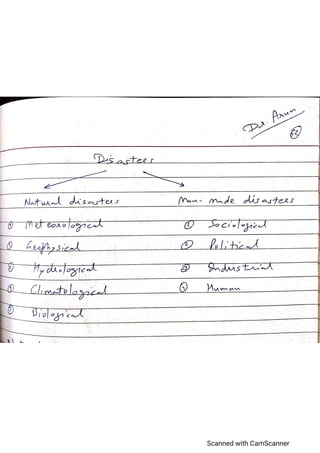 Dr. Arun
Disasters
Natural disasters
① Meteorological
② Geophysical
③ Hydrological
④ Climatological
⑤ Biological
Man-made disasters
① Sociological
② Political
③ Industrial
④ Human
Scanned with CamScanner